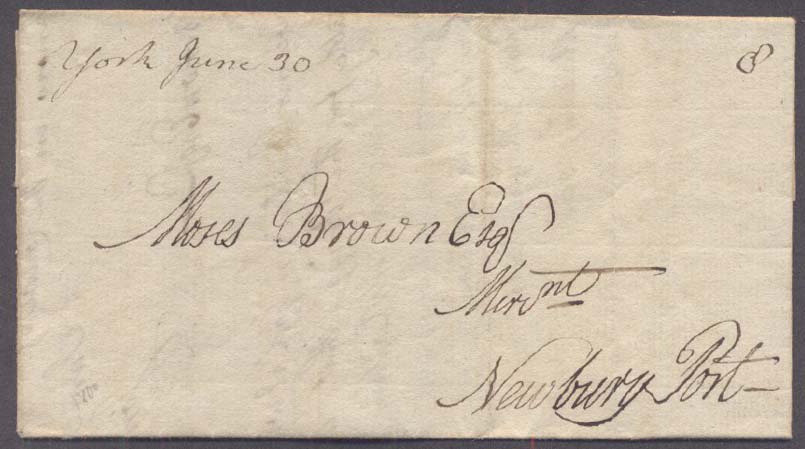 York June 30
8
Moses Brown Esqr
Mercnt
Newbury Port